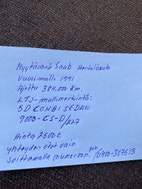 Myytävänä Saab Henkilöauto
Vuosimalli 1991
Ajettu 384,000 km.
LTJ-mallimerkintä:
5D COMBI SEDAN
9000-CS-D/227
Hinta 2500€
yhteyden otot vain
soittamalla numeroon.